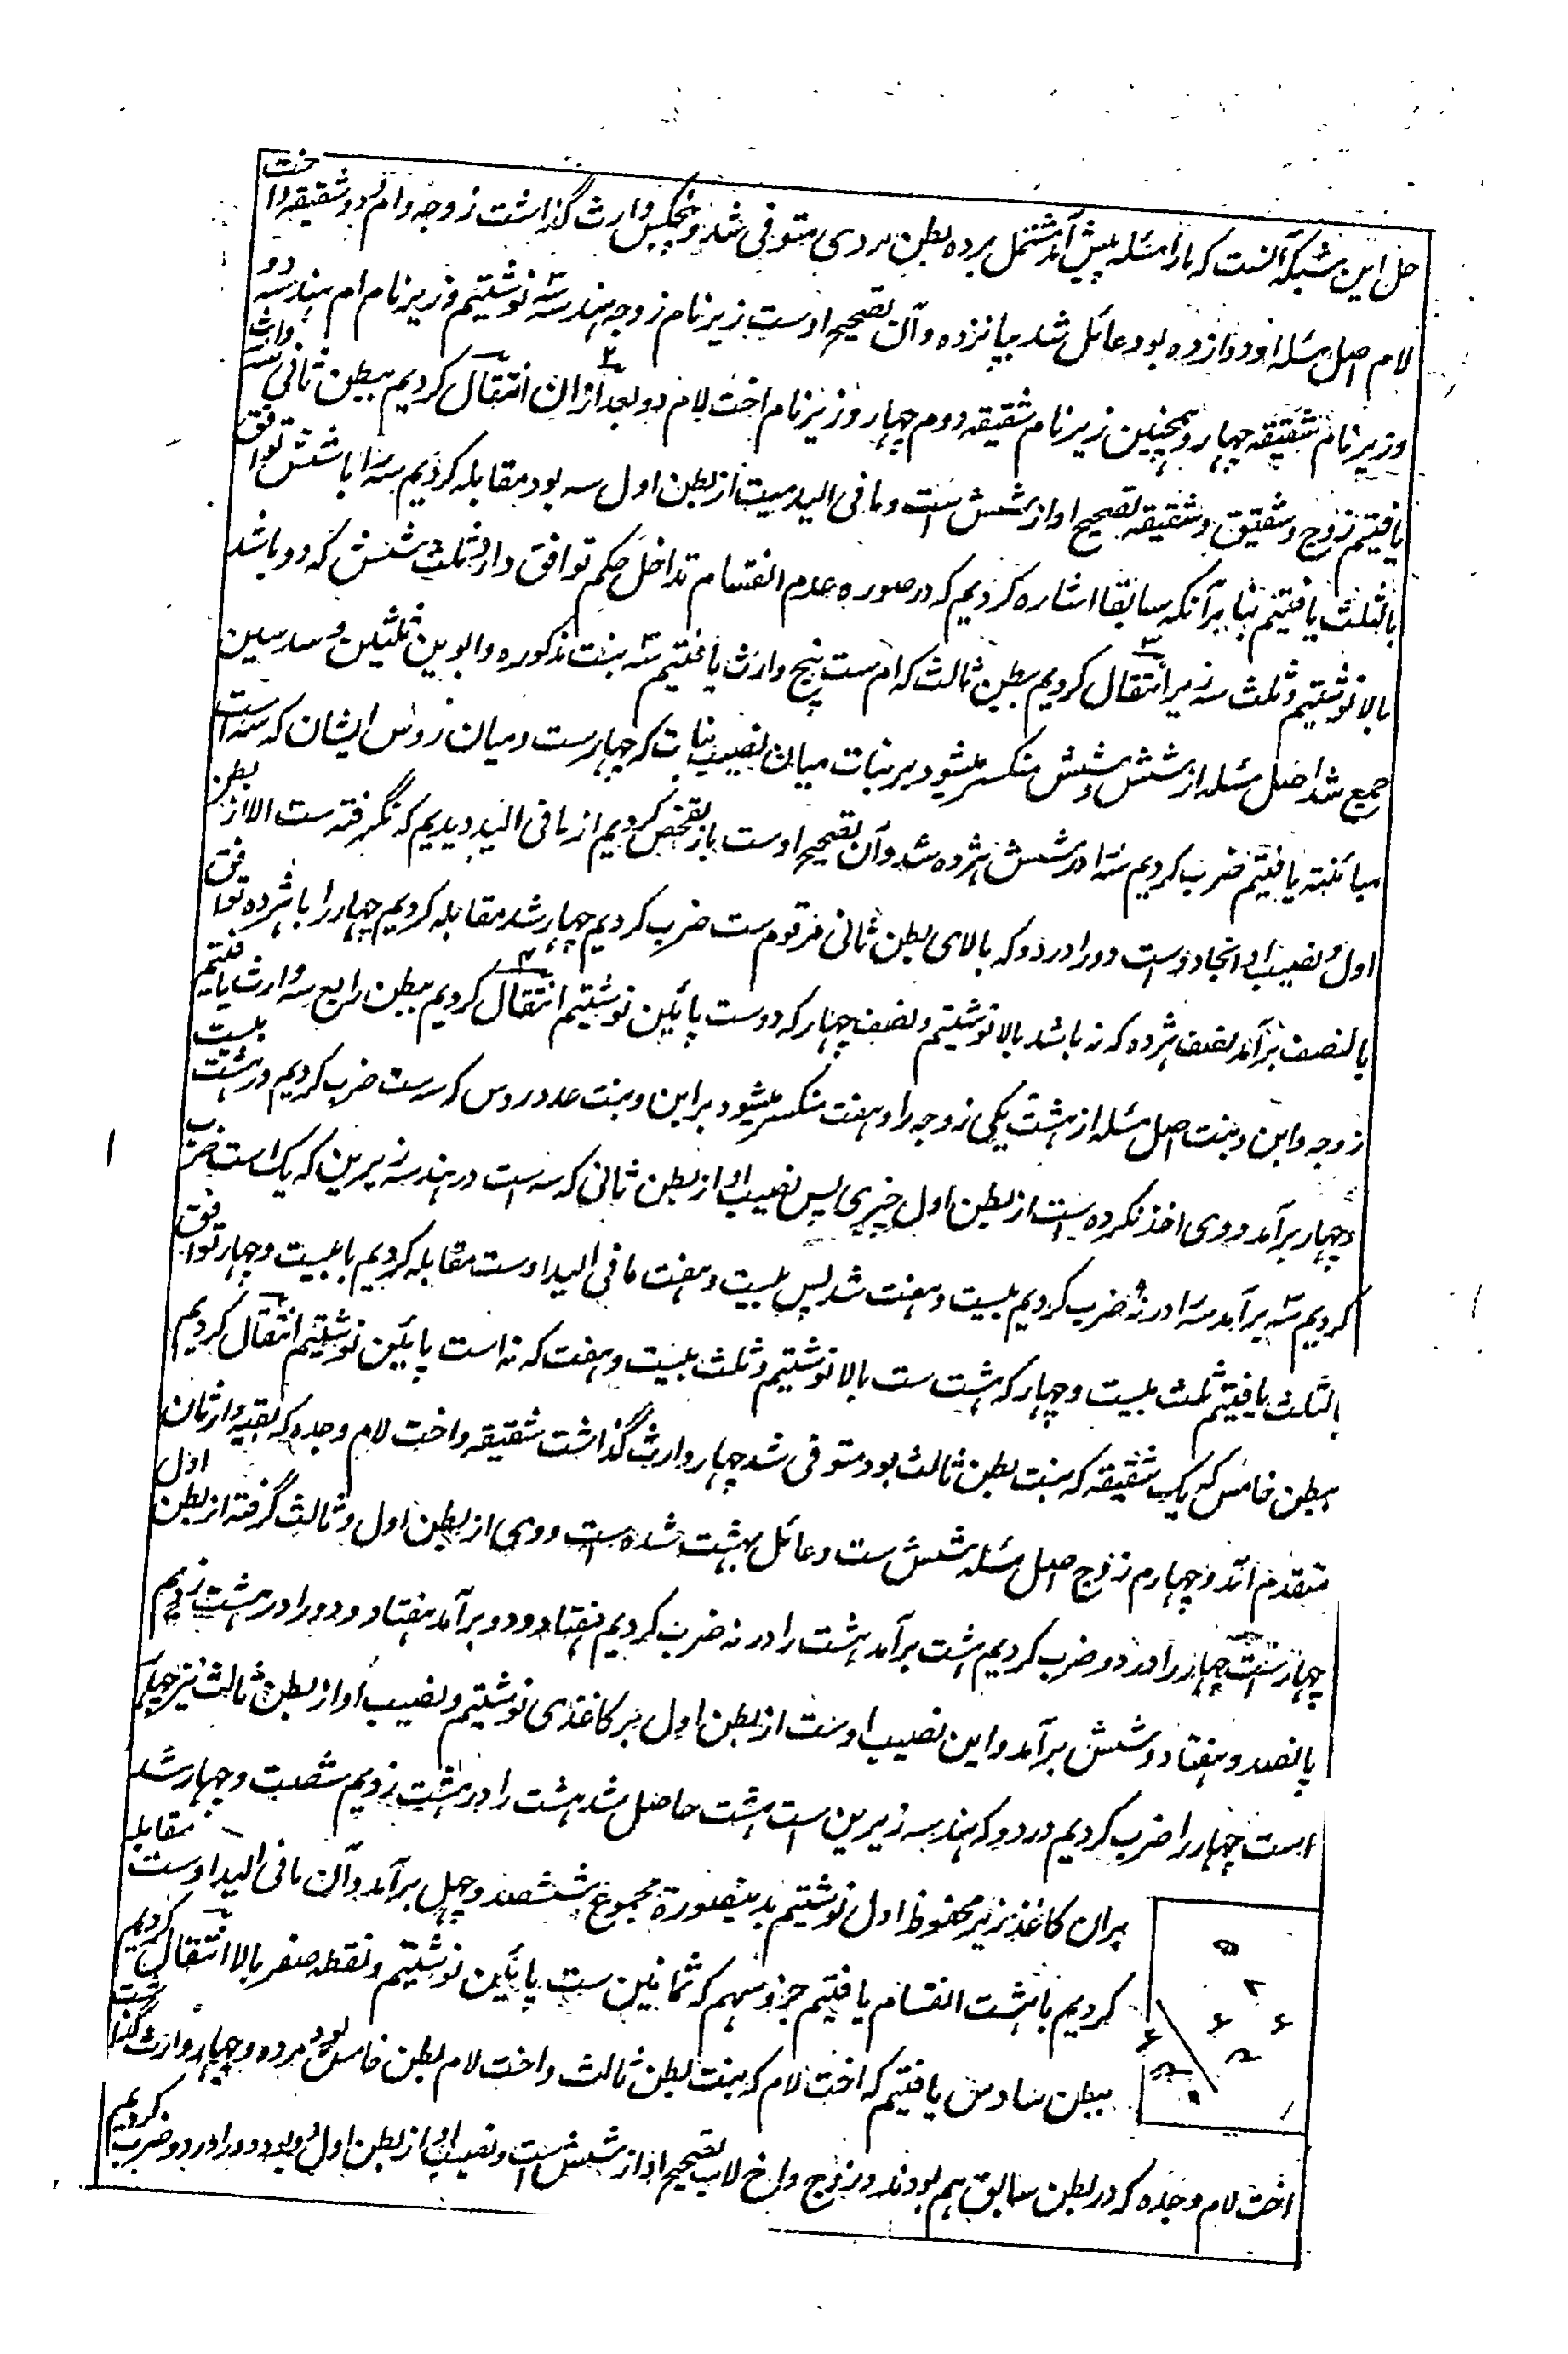 حل این شبکه آنست که مارا مسئله پیش آمد مشتمل بر ده بطن مردی متوفی شد و پنجکس وارث گذاشت زوجه و ام و دو شقیقه و اخت
لام اصل مسئله او دوازده بود عائل شد بپانزده و آن تصحیح اوست زیر نام زوجه هندسه سه نوشتیم و زیر نام ام هندسه دو
و زیر نام شقیقه چهار و همچنین زیر نام شقیقه دوم چهار و زیر نام اخت لام دو بعد ازان انتقال کردیم ببطن ثانی سه وارث
یافتیم زوج و شقیق و شقیقه تصحیح او از شش است و ما فی الید میت از بطن اول سه بود مقابله کردیم سه را با شش توافق
بالثلث یافتیم بنا بر آنکه سابقا اشاره کردیم که در صوره عدم انقسام تداخل حکم توافق دارد ثلث شش که دو باشد
بالا نوشتیم و ثلث سه زیر انتقال کردیم ببطن ثالث که ام ست پنج وارث یافتیم سه بنت مذکوره و ابوین ثلثین و سدسین
جمع شد اصل مسئله از شش و شش منکسر میشود بر بنات میان نصیب بنات که چهارست و میان رؤس ایشان که سه است
مبائنته یافتیم ضرب کردیم سه را در شش هژده شد و آن تصحیح اوست باز تفحص کردیم از ما فی الید دیدیم که نگرفته ست الا از بطن
اول و نصیب او انجا دو است دو را در دو که بالای بطن ثانی مرقوم ست ضرب کردیم چهار شد مقابله کردیم چهار را با هژده توافق
بالنصف بر آمد نصف هژده که نه باشد بالا نوشتیم و نصف چهار که دو ست پائین نوشتیم انتقال کردیم ببطن رابع سه وارث یافتیم
زوجه و ابن و بنت اصل مسئله از هشت یکی زوجه را و هفت منکسر میشود بر ابن و بنت عدد روس که سه ست ضرب کردیم در هشت بیست
و چهار بر آمد و وی اخذ نکرده است از بطن اول چیزی پس نصیب او از بطن ثانی که سه است در هندسه زیرین که یک است ضرب
کردیم سه بر آمد سه را در نه ضرب کردیم بیست و هفت شد پس بیست و هفت ما فی الید اوست مقابله کردیم با بیست و چهار توافق
بالثلث یافتیم ثلث بیست و چهار که هشت ست بالا نوشتیم و ثلث بیست و هفت که نه است پائین نوشتیم انتقال کردیم
ببطن خامس که یک شقیقه که بنت بطن ثالث بود متوفی شد چهار وارث گذاشت شقیقه و اخت لام و جده که بقیه وارثان
متقدم اند و چهارم زوج اصل مسئله شش ست و عائل بهشت شده است و وی از بطن اول و ثالث گرفته از بطن اول
چهار ست چهار را در دو ضرب کردیم هشت بر آمد هشت را در نه ضرب کردیم هفتاد و دو بر آمد هفتاد و دو را در هشت زدیم
پانصد و هفتاد و شش بر آمد و این نصیب اوست از بطن اول بر کاغذی نوشتیم و نصیب او از بطن ثالث نیز چهار
است چهار را ضرب کردیم در دو که هندسه زیرین است هشت حاصل شد هشت را در هشت زدیم شصت و چهار شد
بران کاغذ زیر محفوظ اول نوشتیم بدینصورة مجموع ششصد و چهل بر آمد و آن ما فی الید اوست مقابله
کردیم با هشت انقسام یافتیم جزو سهم که ثمانین ست پائین نوشتیم و نقطه صفر بالا انتقال کردیم
ببطن سادس یافتیم که اخت لام که بنت بطن ثالث و اخت لام بطن خامس بود مرده و چهار وارث گذاشت
اخت لام و جده که در بطن سابق هم بودند و زوج و اخ لاب تصحیح او از شش است و نصیب او از بطن اول دو بود دو را در دو ضرب کردیم